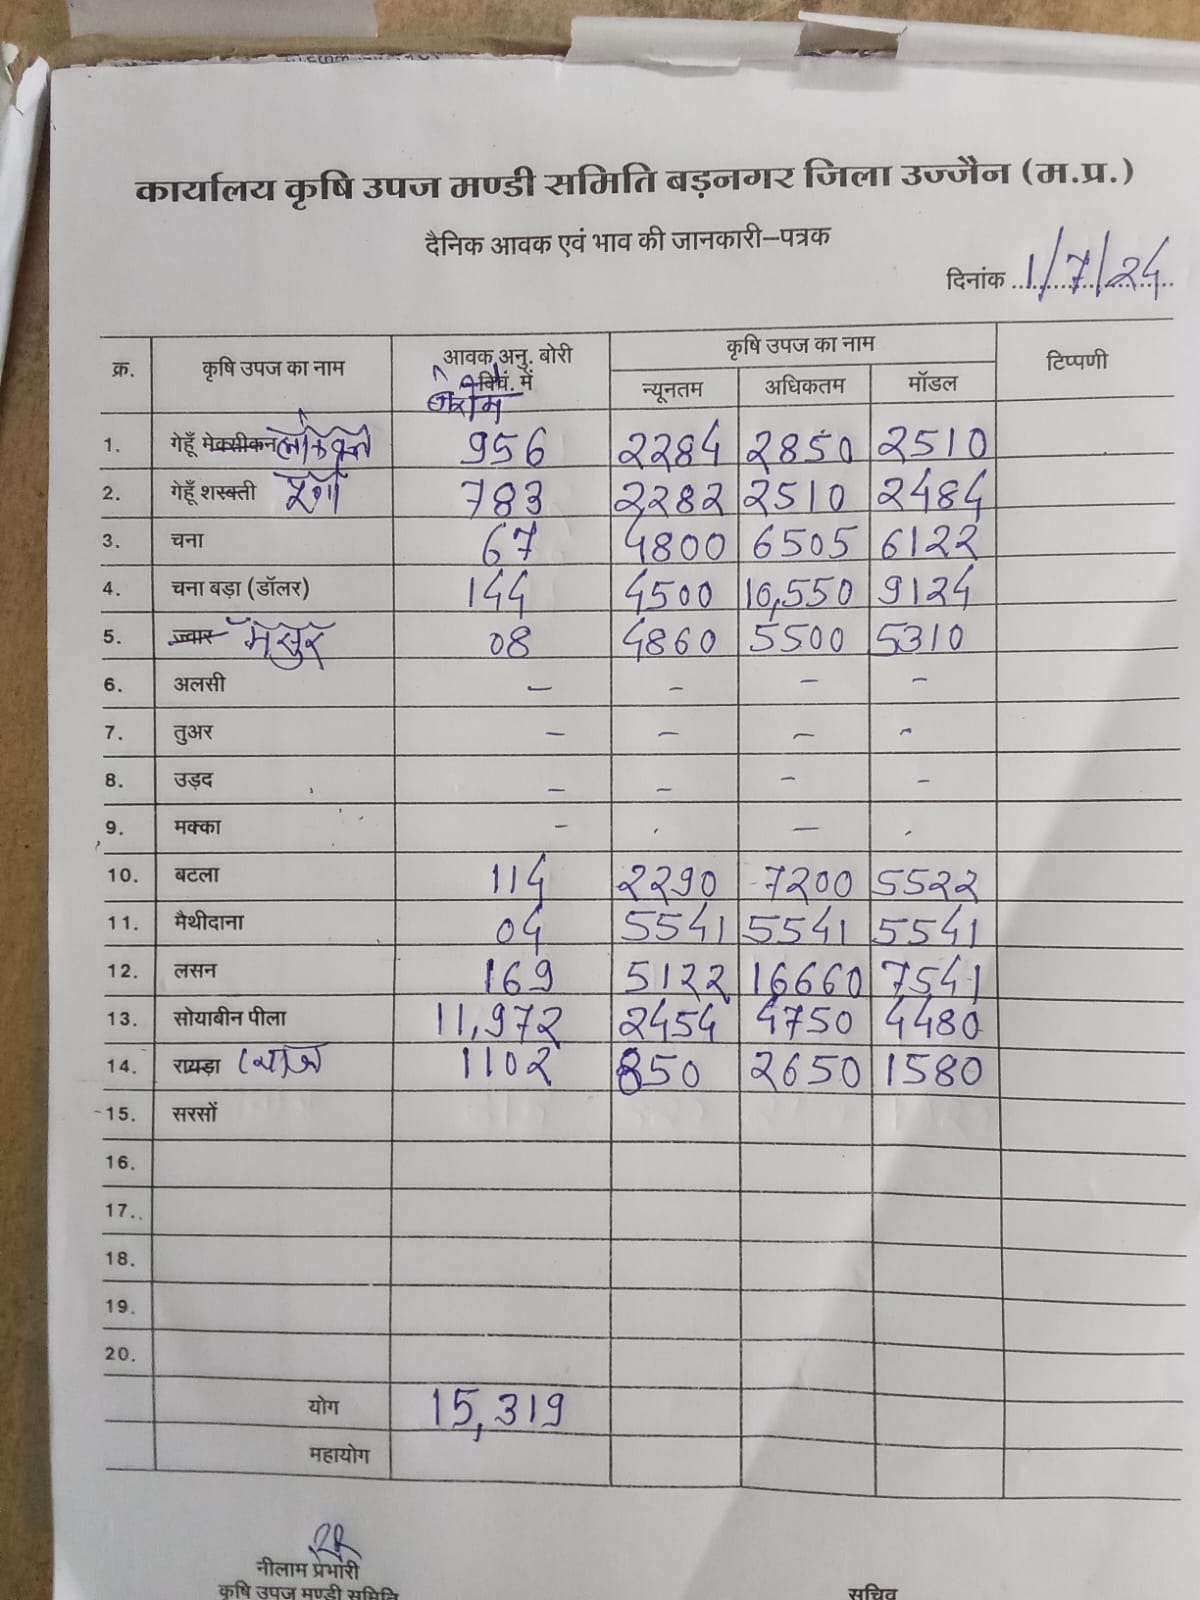 कार्यालय कृषि उपज मण्डी समिति बड़नगर जिला उज्जैन (म.प्र.)
दैनिक आवक एवं भाव की जानकारी–पत्रक
दिनांक 1/7/24
क्र. कृषि उपज का नाम आवक अनु. बोरी क्विं. में कृषि उपज का नाम टिप्पणी
न्यूनतम अधिकतम मॉडल
1. गेहूँ मेक्सीकन लोकवन 956 2284 2850 2510
2. गेहूँ शरबती 783 2282 2510 2484
3. चना 67 4800 6505 6122
4. चना बड़ा (डॉलर) 144 4500 10,550 9124
5. ज्वार मसुर 08 4860 5500 5310
6. अलसी – – – –
7. तुअर – – – -
8. उड़द – – – –
9. मक्का – . – .
10. बटला 114 2290 7200 5522
11. मैथीदाना 04 5541 5541 5541
12. लसन 169 5122 16660 7541
13. सोयाबीन पीला 11,972 2454 4750 4480
14. रायड़ा प्याज 1102 850 2650 1580
15. सरसों
16.
17.
18.
19.
20.
योग 15,319
महायोग
नीलाम प्रभारी
कृषि उपज मण्डी समिति
सचिव